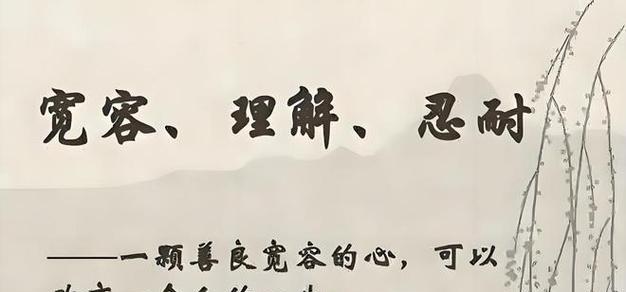 宽容、理解、忍耐
——一颗善良宽容的心，可以